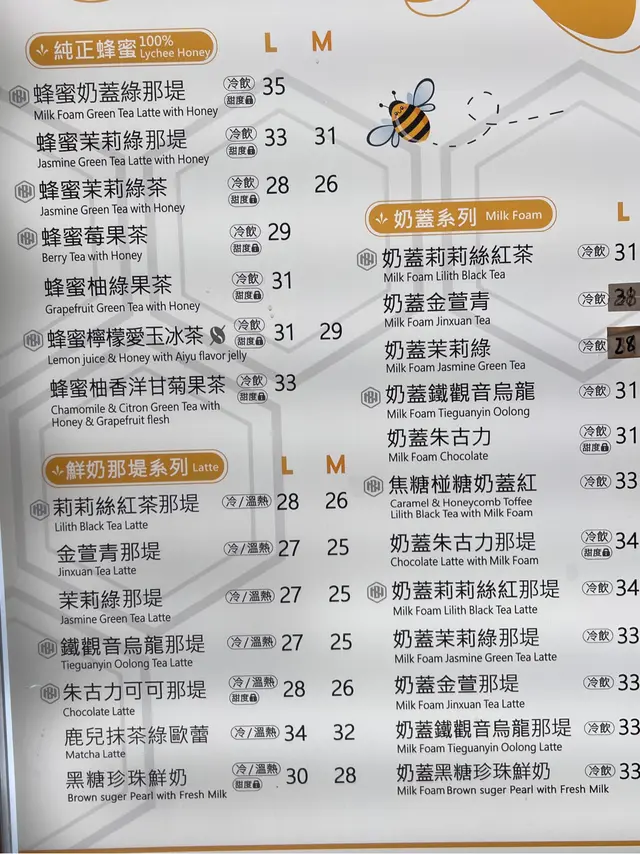 純正蜂蜜 100% Lychee Honey L M
蜂蜜奶蓋綠那堤 冷飲 甜度 35
Milk Foam Green Tea Latte with Honey
蜂蜜茉莉綠那堤 冷飲 甜度 33 31
Jasmine Green Tea Latte with Honey
蜂蜜茉莉綠茶 冷飲 甜度 28 26
Jasmine Green Tea with Honey
蜂蜜莓果茶 冷飲 甜度 29
Berry Tea with Honey
蜂蜜柚綠果茶 冷飲 甜度 31
Grapefruit Green Tea with Honey
蜂蜜檸檬愛玉冰茶 冷飲 甜度 31 29
Lemon juice & Honey with Aiyu flavor jelly
蜂蜜柚香洋甘菊果茶 冷飲 甜度 33
Chamomile & Citron Green Tea with
Honey & Grapefruit flesh
鮮奶那堤系列 Latte L M
莉莉絲紅茶那堤 冷/溫熱 28 26
Lilith Black Tea Latte
金萱青那堤 冷/溫熱 27 25
Jinxuan Tea Latte
茉莉綠那堤 冷/溫熱 27 25
Jasmine Green Tea Latte
鐵觀音烏龍那堤 冷/溫熱 27 25
Tieguanyin Oolong Tea Latte
朱古力可可那堤 冷/溫熱 甜度 28 26
Chocolate Latte
鹿兒抹茶綠歐蕾 冷/溫熱 34 32
Matcha Latte
黑糖珍珠鮮奶 冷/溫熱 甜度 30 28
Brown suger Pearl with Fresh Milk
奶蓋系列 Milk Foam L
奶蓋莉莉絲紅茶 冷飲 31
Milk Foam Lilith Black Tea
奶蓋金萱青 冷飲
Milk Foam Jinxuan Tea
奶蓋茉莉綠 冷飲 28
Milk Foam Jasmine Green Tea
奶蓋鐵觀音烏龍 冷飲 31
Milk Foam Tieguanyin Oolong
奶蓋朱古力 冷飲 甜度 31
Milk Foam Chocolate
焦糖椪糖奶蓋紅 冷飲 33
Caramel & Honeycomb Toffee
Lilith Black Tea with Milk Foam
奶蓋朱古力那堤 冷飲 甜度 34
Chocolate Latte with Milk Foam
奶蓋莉莉絲紅那堤 冷飲 34
Milk Foam Lilith Black Tea Latte
奶蓋茉莉綠那堤 冷飲 33
Milk Foam Jasmine Green Tea Latte
奶蓋金萱那堤 冷飲 33
Milk Foam Jinxuan Tea Latte
奶蓋鐵觀音烏龍那堤 冷飲 33
Milk Foam Tieguanyin Oolong Latte
奶蓋黑糖珍珠鮮奶 冷飲 33
Milk Foam Brown suger Pearl with Fresh Milk